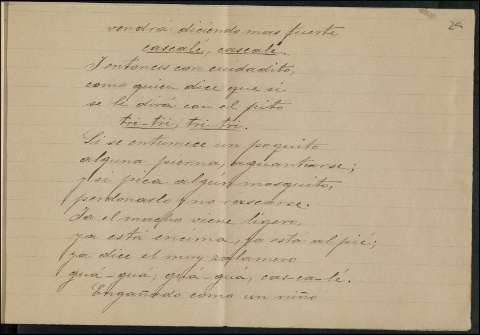 24
vendrá diciendo mas fuerte
cascalé, cascalé.
Y entonces con cuidadito,
como quien dice que si
se le dirá con el pito
tri-tri, tri-tri.
Si se entumece un poquito
alguna pierna, aguantarse;
y si pica algún mosquito,
perdonarlo y no rascarse.
Ya el macho viene ligero,
ya está encima, ya está al pié;
ya dice el muy zalamero
guá-guá; guá-guá, cas-ca-lé.
Engañado como un niño